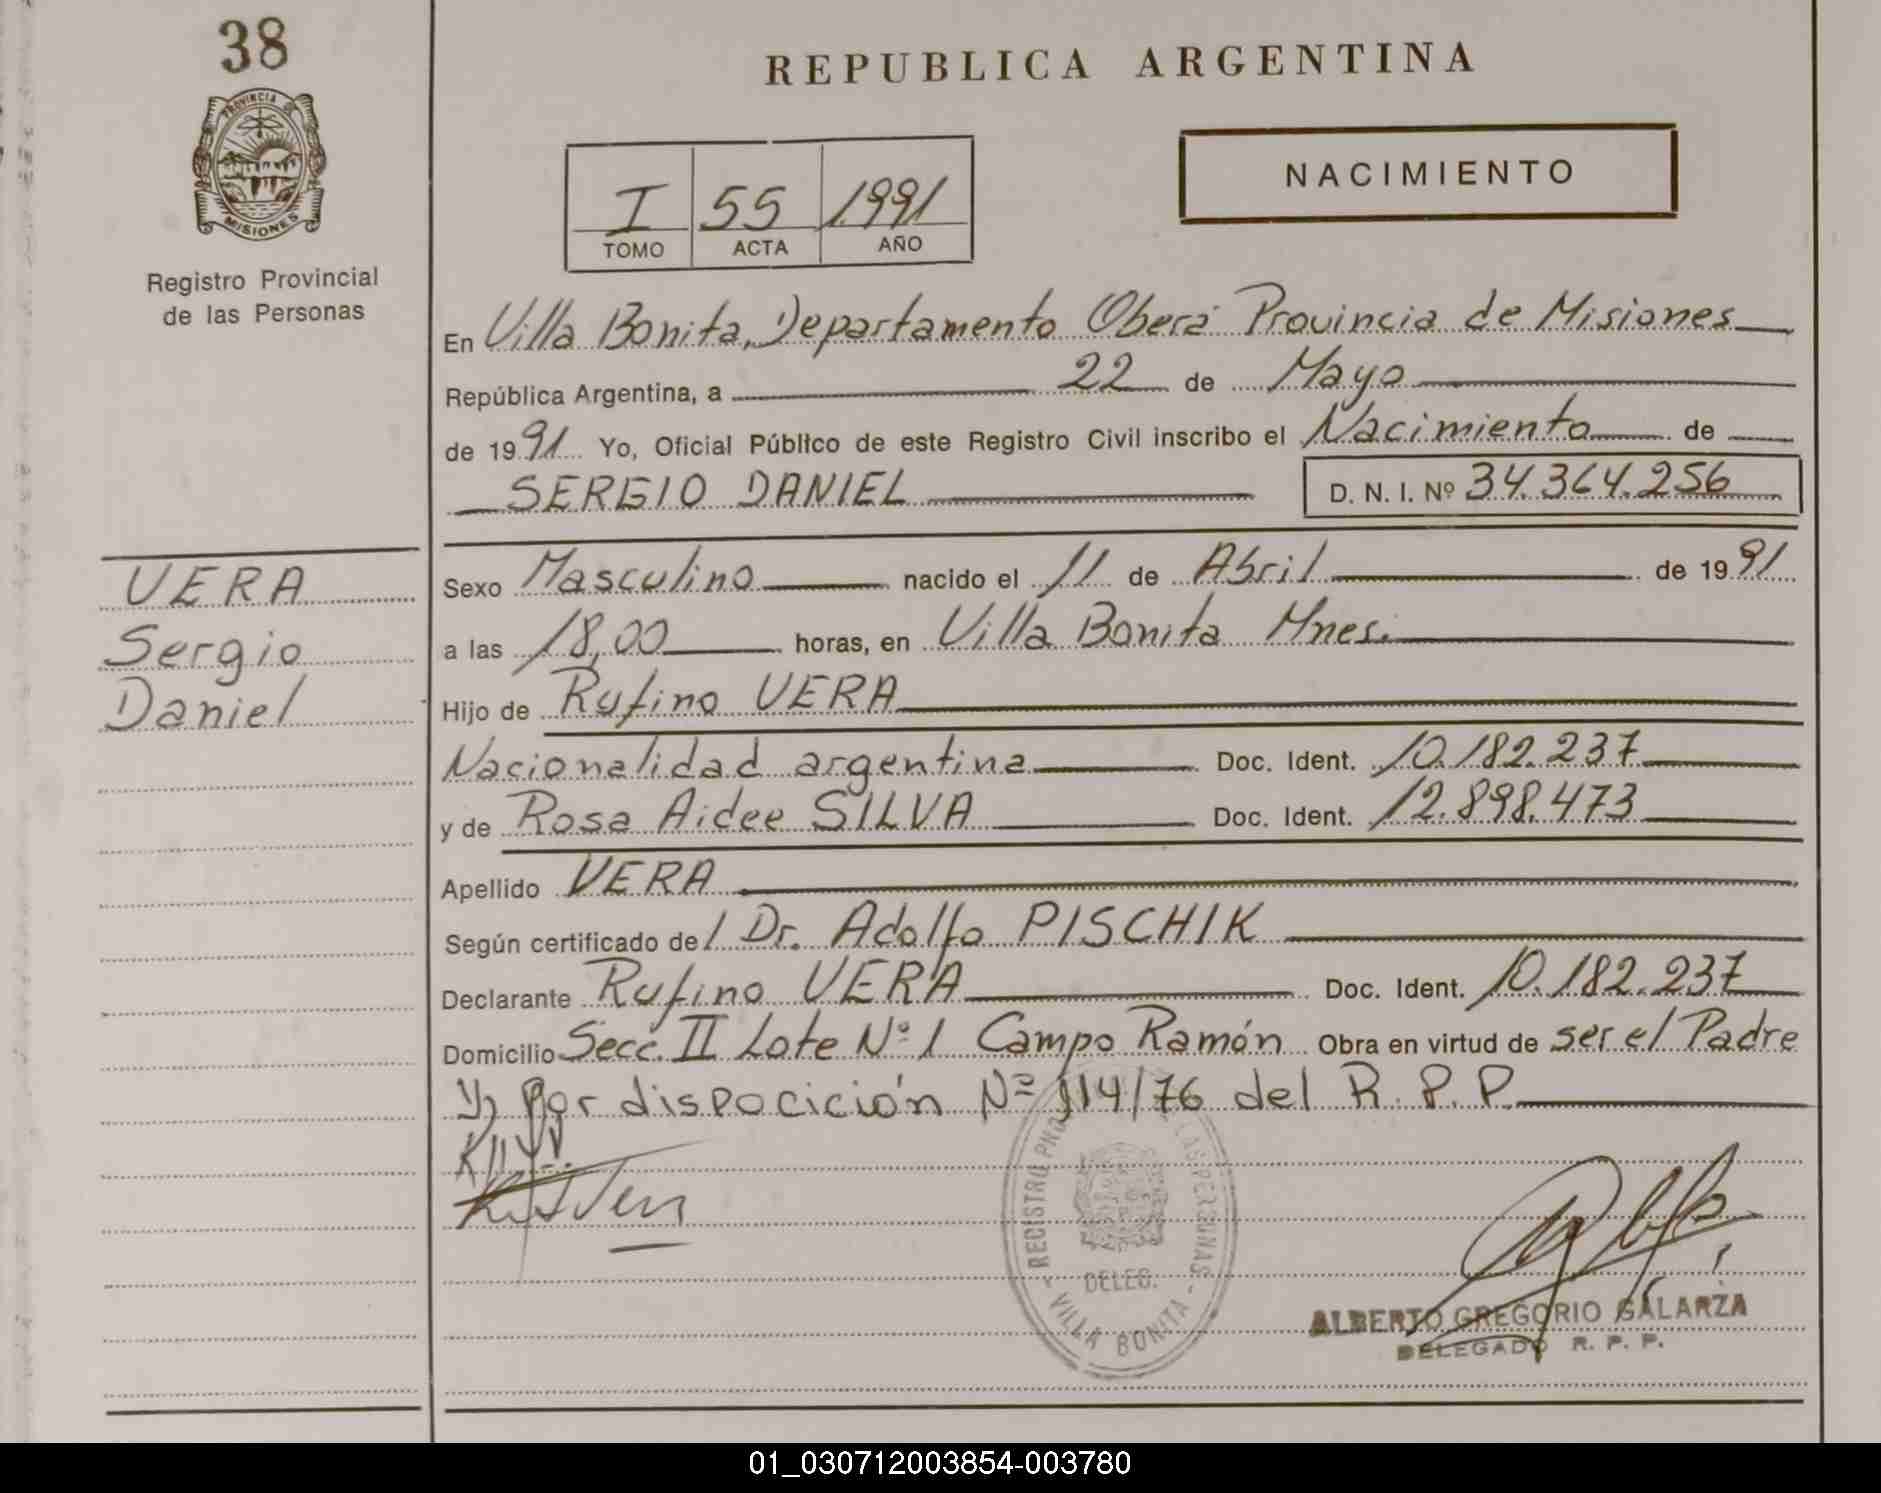 38
PROVINCIA DE
MISIONES
Registro Provincial
de las Personas
VERA
Sergio
Daniel
REPUBLICA ARGENTINA
I 55 1991
TOMO ACTA AÑO
NACIMIENTO
En Villa Bonita, Departamento Oberá Provincia de Misiones
República Argentina, a 22 de Mayo
de 1991 Yo, Oficial Público de este Registro Civil inscribo el Nacimiento de
SERGIO DANIEL D. N. I. Nº 34.364.256
Sexo Masculino nacido el 11 de Abril de 1991
a las 18,00 horas, en Villa Bonita Mnes.
Hijo de Rufino VERA
Nacionalidad argentina Doc. Ident. 10.182.237
y de Rosa Aidee SILVA Doc. Ident. 12.898.473
Apellido VERA
Según certificado del Dr. Adolfo PISCHIK
Declarante Rufino VERA Doc. Ident. 10.182.237
Domicilio Secc. II Lote Nº 1 Campo Ramón Obra en virtud de ser el Padre
1) Por dispocición Nº 114/76 del R. P. P.
DELEG.
- VILLA BONITA -
ALBERTO GREGORIO GALARZA
DELEGADO R. P. P.
01_030712003854-003780